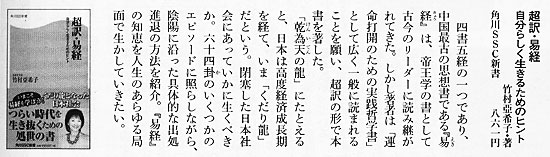 超訳・易経
自分らしく生きるためのヒント
竹村亞希子・著
角川SSC新書 八六一円
四書五経の一つであり、
中国最古の思想書である『易
経』は、帝王学の書として
古今のリーダーに読み継が
れてきた。しかし著者は「運
命打開のための実践哲学書」
として広く一般に読まれる
ことを願い、超訳の形で本
書を著した。
「乾為天の龍」にたとえる
と、日本は高度経済成長期
を経て、いま「くだり龍」
だという。閉塞した日本社
会にあっていかに生くべき
か。六十四卦のいくつかの
エピソードに照らしながら、
陰陽に沿った具体的な出処
進退の方法を紹介。『易経』
の知恵を人生のあらゆる局
面で生かしていきたい。
超訳・易経
竹村亞希子
つらい時代を
生き抜くための
処世の書